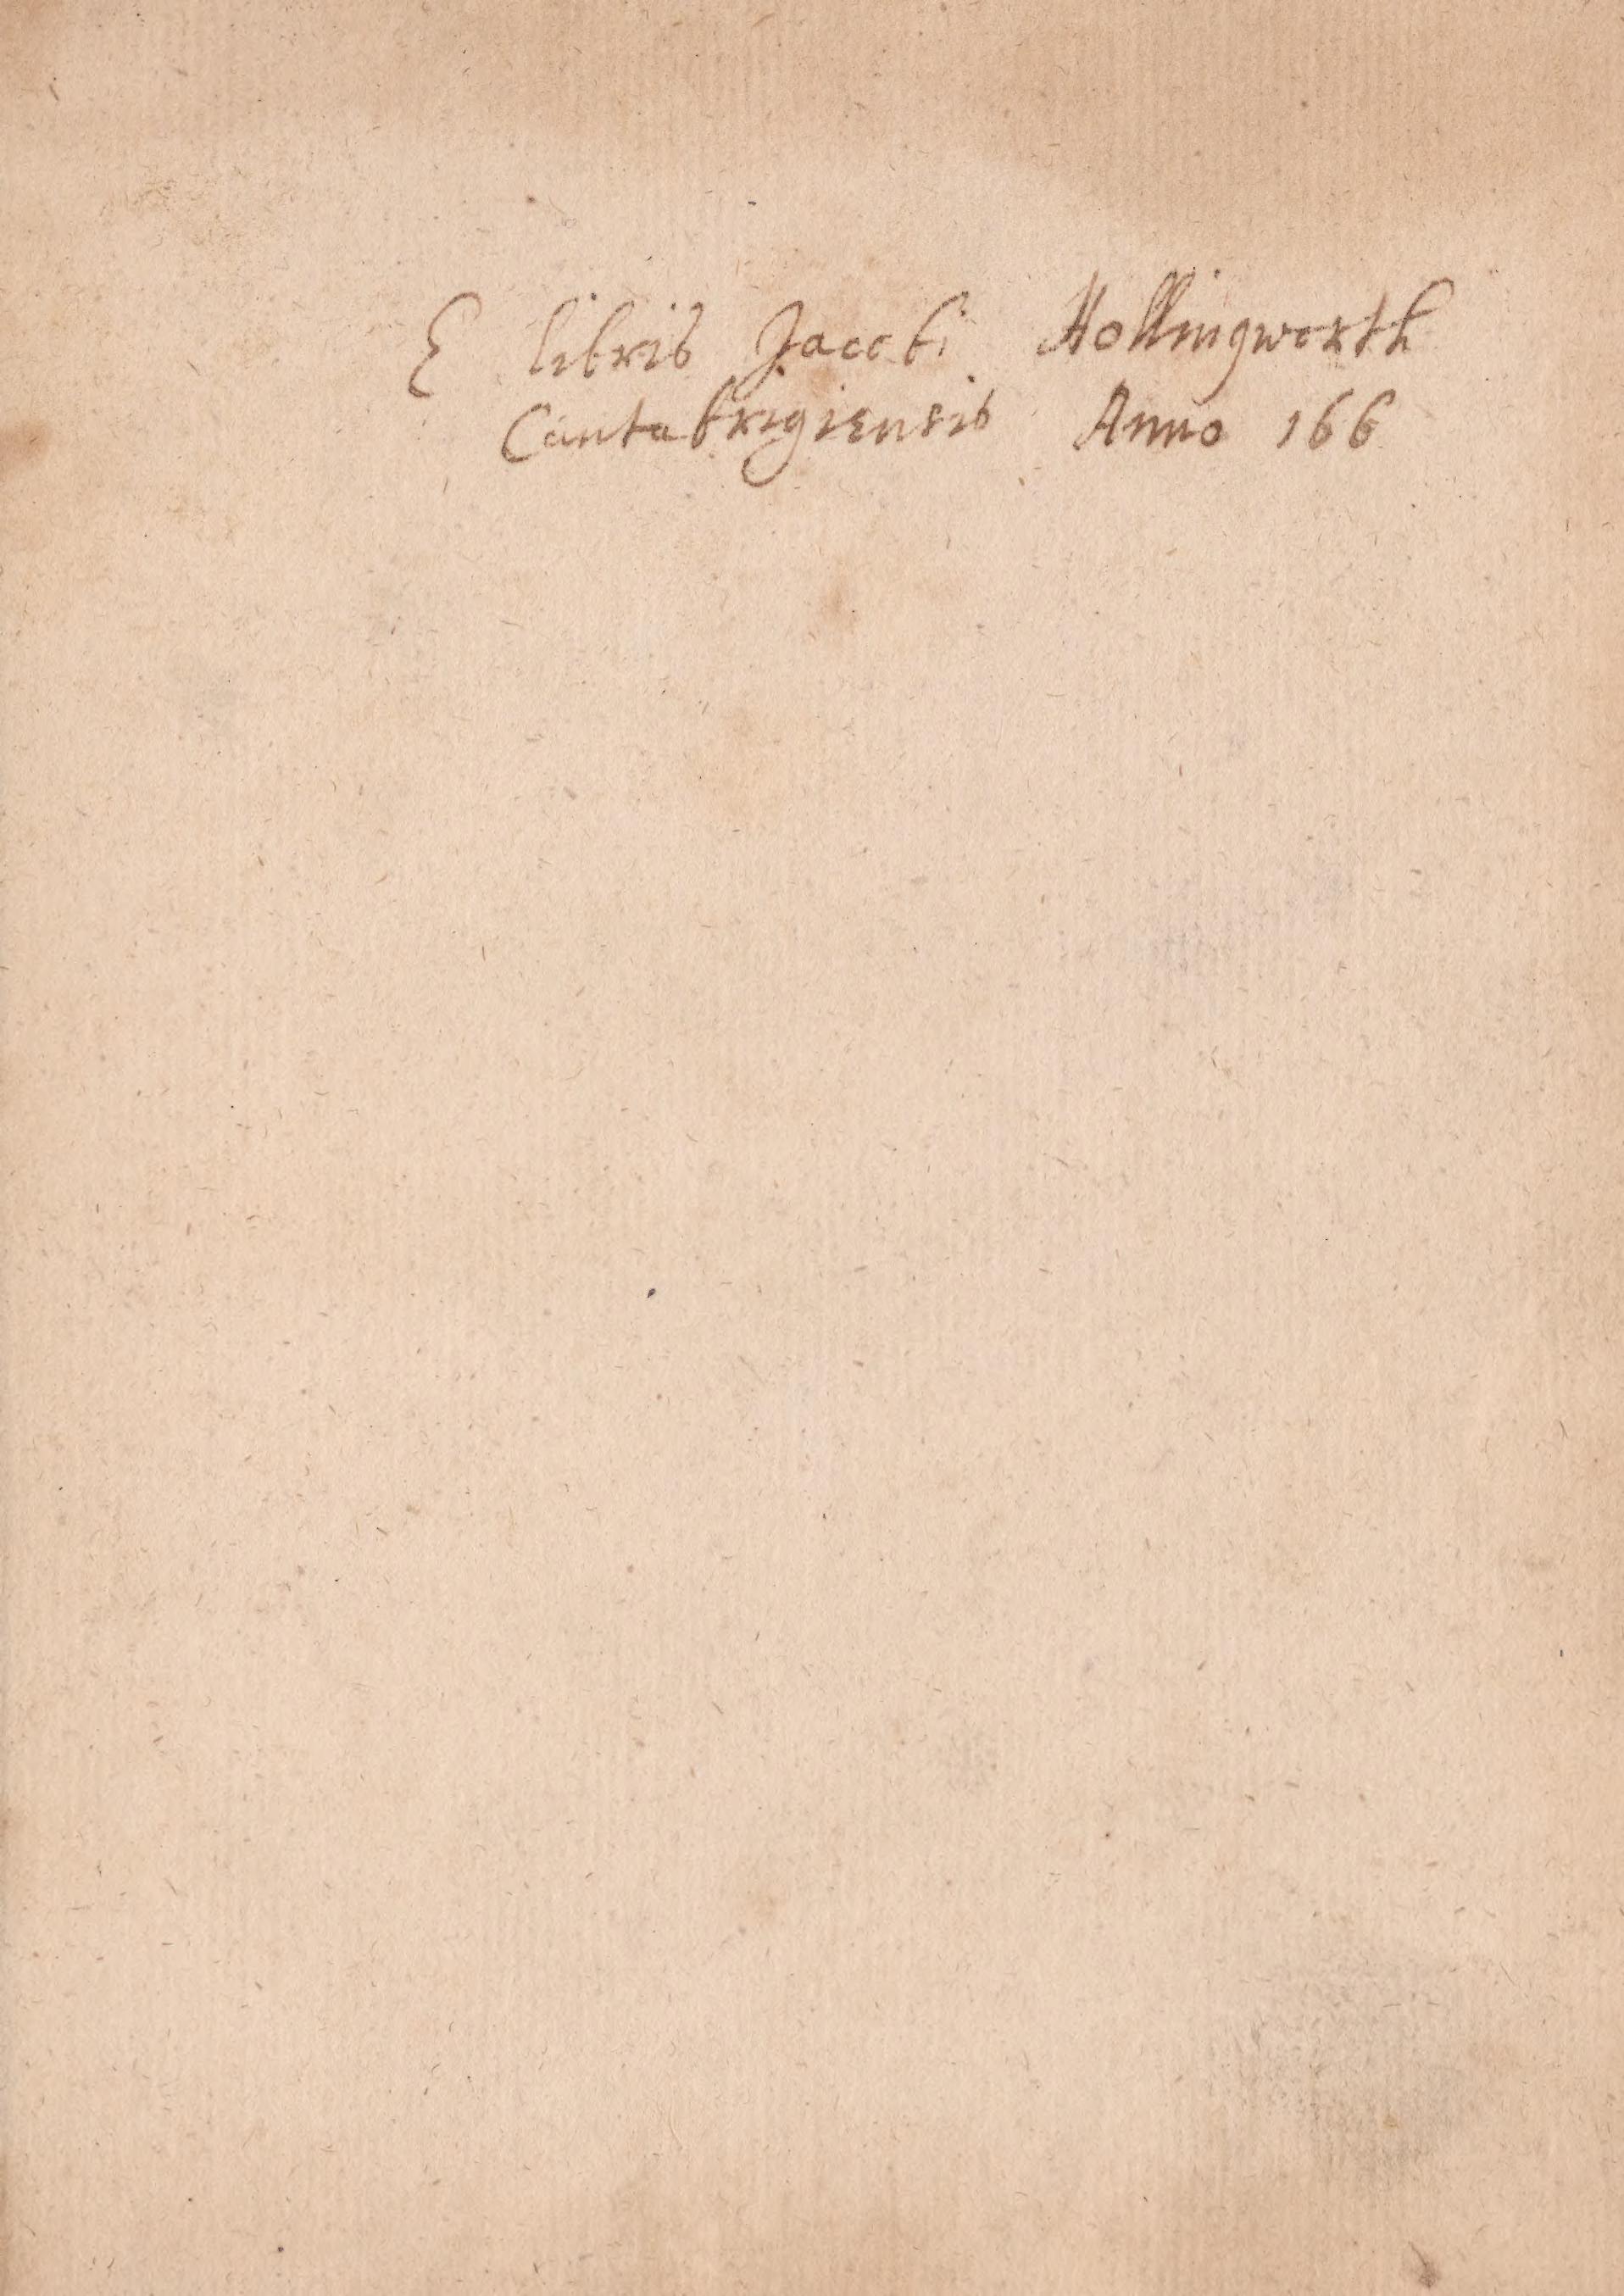 E libris Jacobi Hollingworth
Cantabrigiensis Anno 166